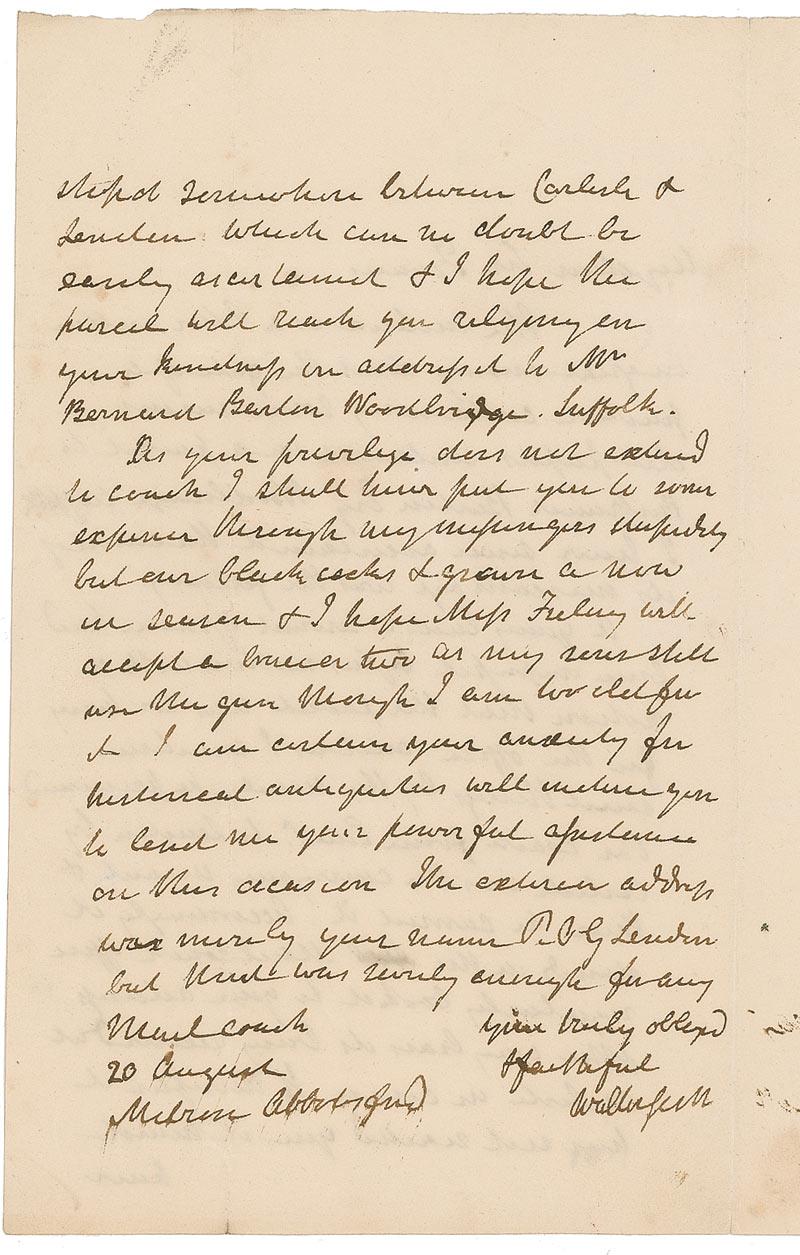 stopd somewhere between Carlisle &
London which can no doubt be
easily ascertained & I hope the
parcel will reach you relying on
your kindness in addressd to Mr
Bernard Barton Woodbridge. Suffolk.
As your privilege does not extend
to coach I shall have put you to some
expence through my messengers stupidity
but our black cocks & grouse a now
in season & I hope Miss Freling will
accept a brace or two as my sons still
use the gun though I am too old for
it I am certain your anxiety for
historical antiquities will induce you
to lend me your powerful assistance
on this occasion The exterior address
was merely your name London
but that was surely enough for any
Mail coach your truly obliged
20 August & faithful
Melrose Abbotsford Walter Scott